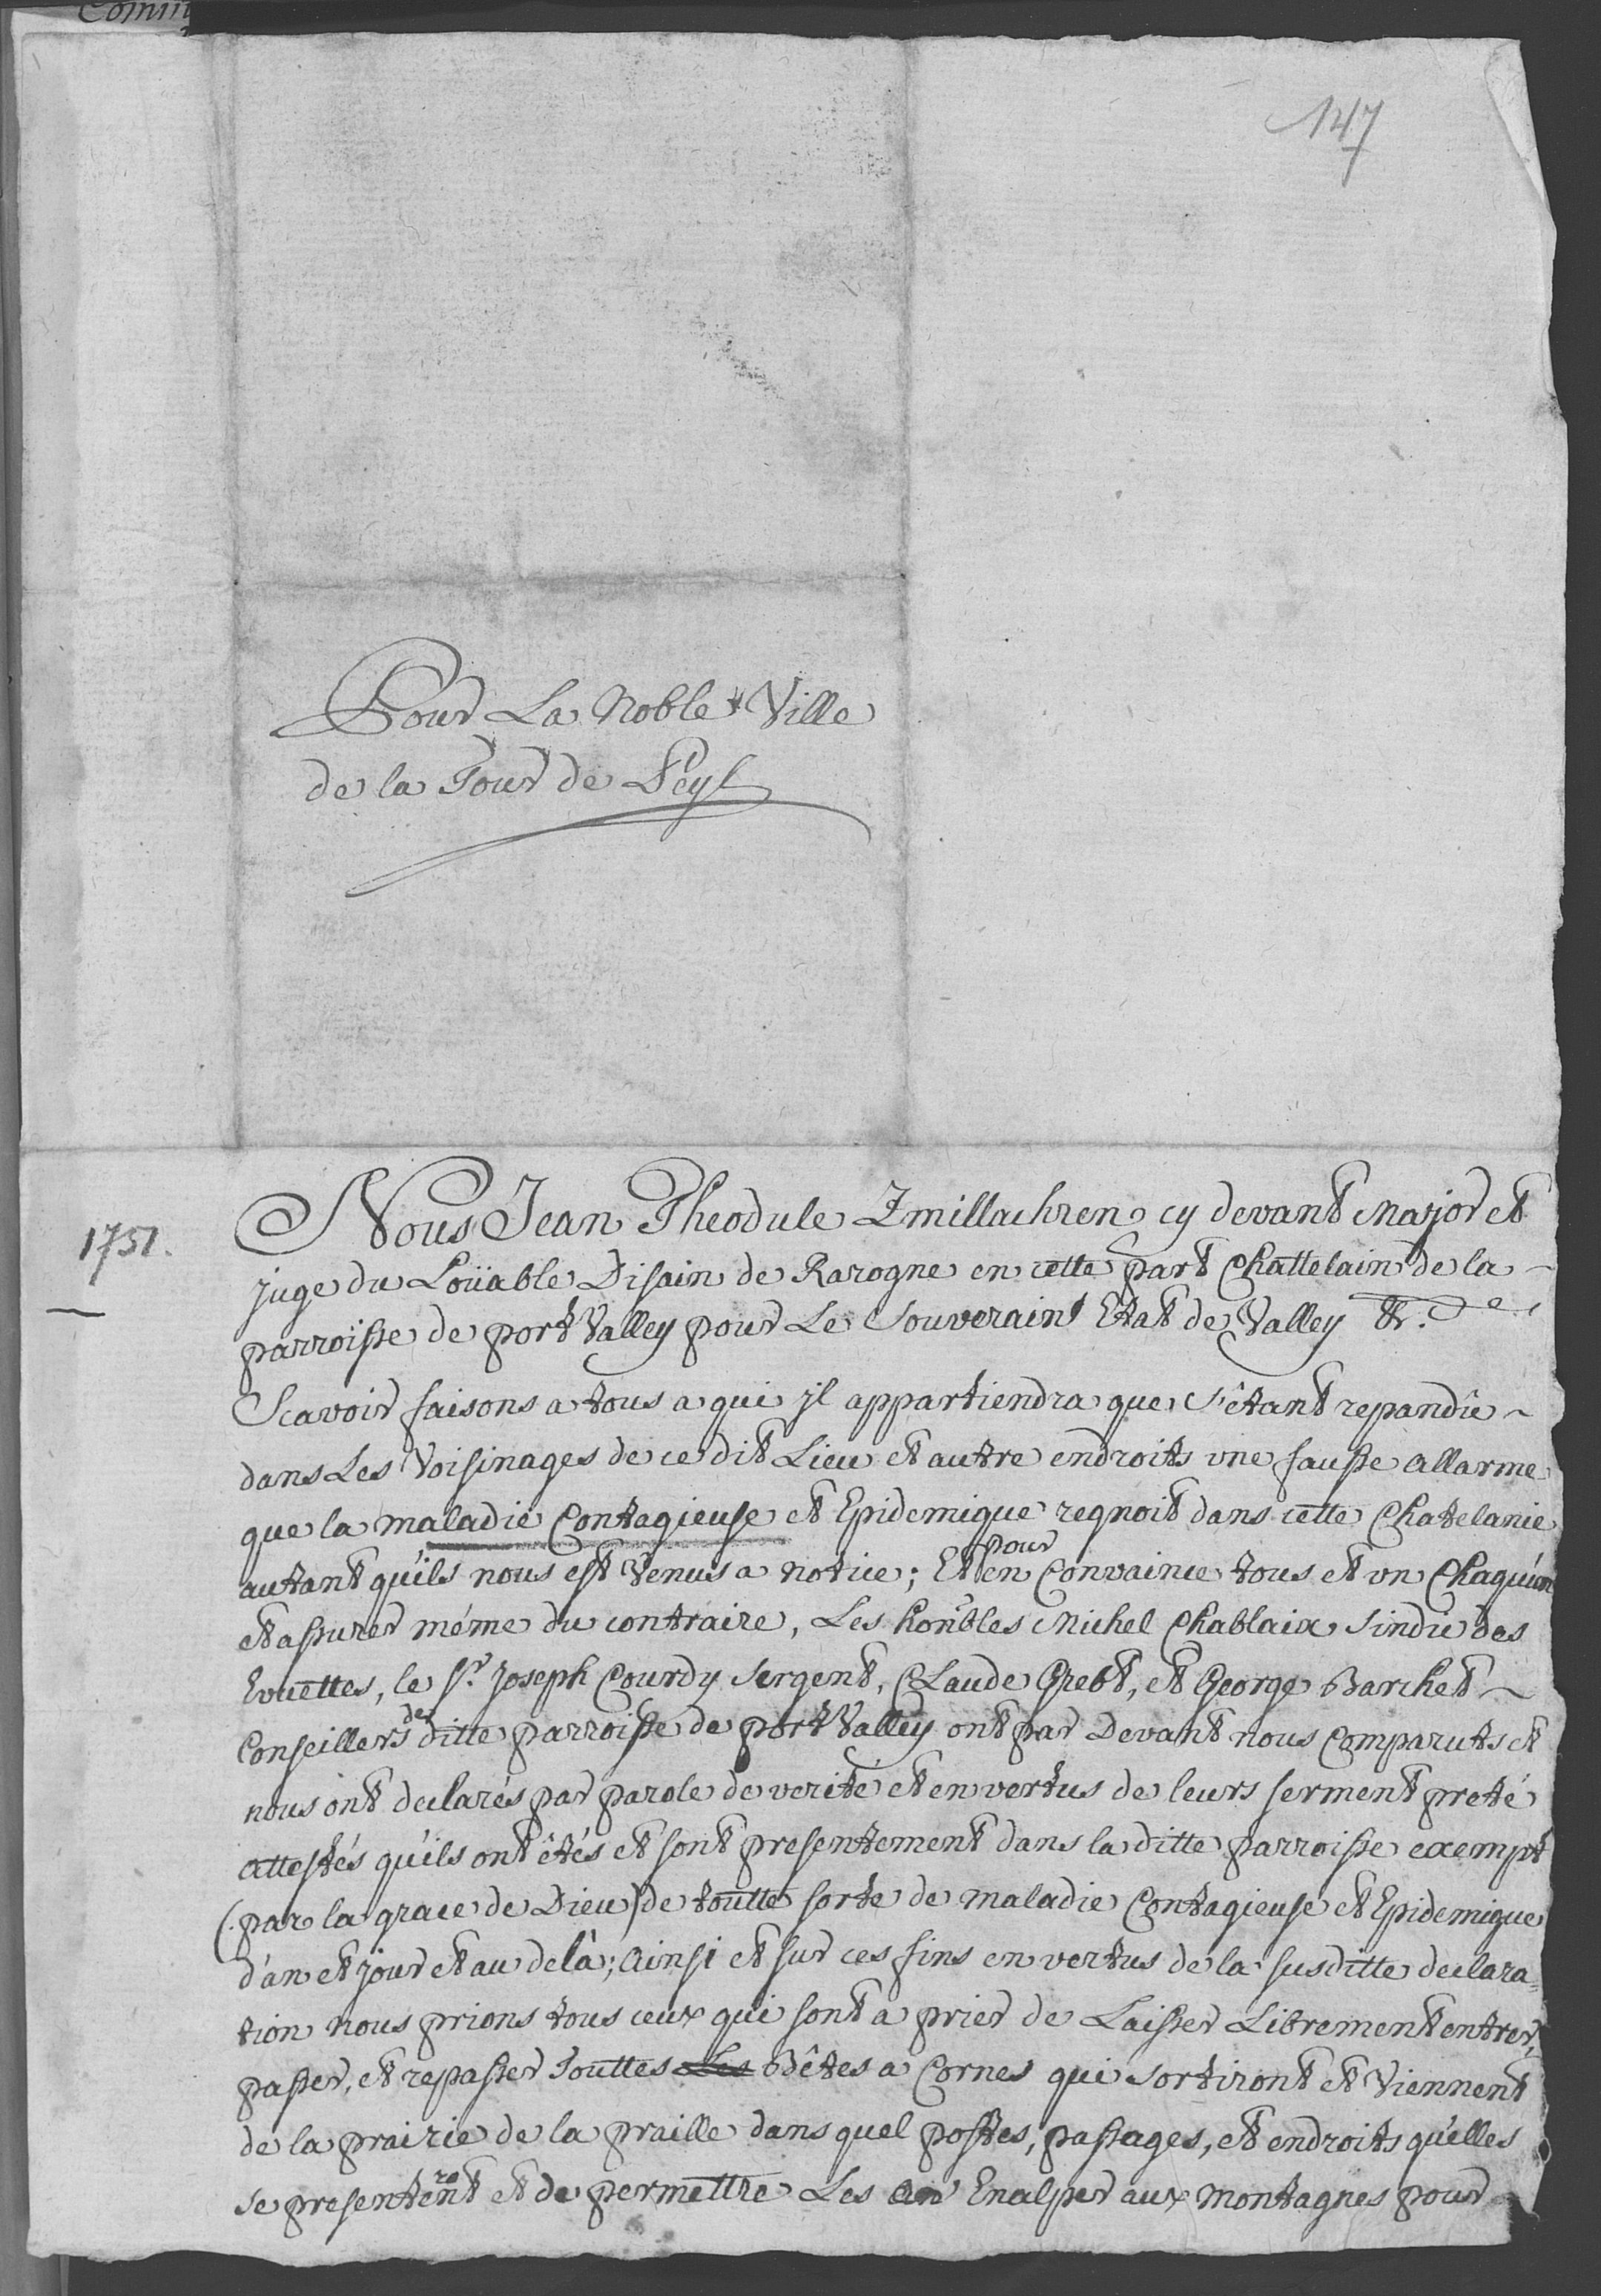 147
Pour La Noble Ville
de la Tour de Peyl
1751.
Nous Jean Theodule Zmillachren cy devant Major et
juge du Loüable Disain de Rarogne en cette part Chattelain de la
parroisse de port Valley pour Le Souverain Etat de Valley &c.
Scavoir faisons a tous a qui jl appartiendra que s'êtant repandû
dans Les Voisinages de ce dit Lieu et autre endroits vne fausse allarme
que la maladie Contagieuse et Epidemique regnoit dans cette Chatelanie
autant qu'ils nous est Venus a notice; Et pour en Convaince tous et vn Chaqu'un
et assurer méme du contraire, Les honbles Michel Chablaix Sindic des
Evuettes, le Sr. Joseph Courdy Sergent, Claude Grebt, et George Barchet
Conseillers de ditte parroisse de port Valley ont par Devant nous Comparuts et
nous ont declarés par parole de verité et en vertus de leurs serment preté
attestés qu'ils ont êtés et sont presentement dans la ditte parroisse exempt
(par la grace de Dieu) de toutte sorte de maladie Contagieuse et Epidemique
d'an et jour et au delà; Ainsi et sur ces fins en vertus de la susditte declara=
tion nous prions tous ceux qui sont a prier de Laisser Librement entrer,
passer, et repasser Touttes Les Bêtes a Cornes qui sortiront et Viennent
de la prairie de la praille dans quel postes, passages, et endroits qu'elles
se presenteront et de permettre Les Enalper aux montagnes pour